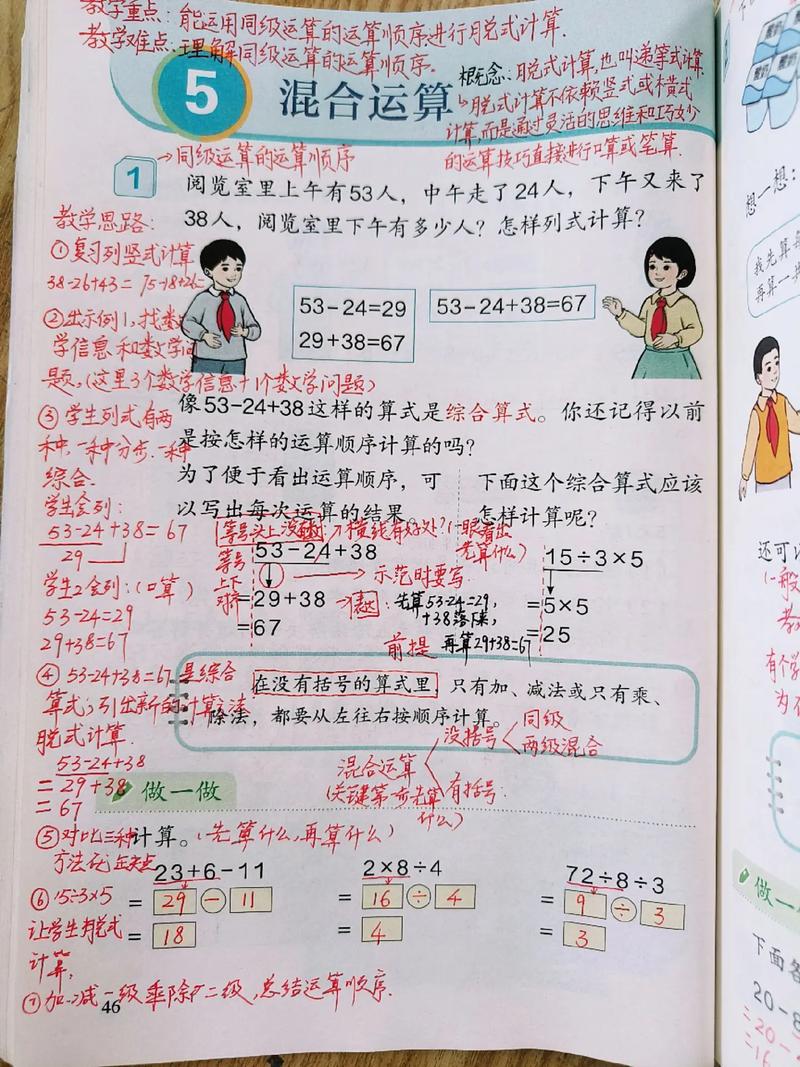 教学重点：能运用同级运算的运算顺序进行脱式计算.
教学难点：理解同级运算的运算顺序。
5 混合运算
概念：脱式计算，也叫递等式计算
脱式计算不依赖竖式或横式
计算，而是通过灵活的思维和巧妙
的运算技巧直接进行口算或笔算.
→同级运算的运算顺序
1
阅览室里上午有53人，中午走了24人，下午又来了
38人，阅览室里下午有多少人？怎样列式计算？
教学思路：
①复习列竖式计算
38-26+43= 75-18+26=
②出示例1，找数
学信息和数学问
题，(这里3个数学信息+1个数学问题)
53-24=29
29+38=67
53-24+38=67
③学生列式有两
种.一种分步.一种
综合.
像53-24+38这样的算式是综合算式。你还记得以前
是按怎样的运算顺序计算的吗？
为了便于看出运算顺序，可
以写出每次运算的结果。
下面这个综合算式应该
怎样计算呢？
学生会列：
53-24+38=67
29
学生2会列：(口算)
53-24=29
29+38=67
等号
上下
对齐
53-24+38
=29+38
=67
→示范时要写
先算53-24=29,
+38落下来,
再算29+38=67
前提
先算什么)
15÷3×5
=5×5
=25
④53-24+38=67是综合
算式，引出新的计算方法
脱式计算.
53-24+38
=29+38
=67
在没有括号的算式里，只有加、减法或只有乘、
除法，都要从左往右按顺序计算。
混合运算
(关键第一步先算
什么)
没括号
同级
两级混合
有括号.
做一做
⑤对比三种计算。(先算什么,再算什么)
⑥15÷3×5
让学生脱式
计算，
23+6-11
= 29 - 11
= 18
2×8÷4
= 16 ÷ 4
= 4
72÷8÷3
= 9 ÷ 3
= 3
⑦加.减一级乘除二级，总结运算顺序.
46
想一想：
我先算
再算一步
还可以
做一
下面各
20-8
=20-
=16